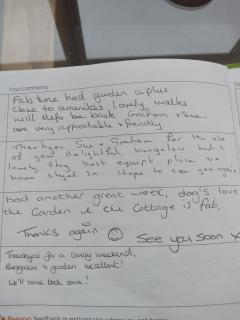 Your comments
Fab time had garden a plus
close to amenities lovely walks
will defo be back Graham + Sue
are very approachable + friendly.
Thankyou Sue + Graham for the use
of your delightful bungalow had a
lovely stay best equipt place we
have stayed in. Hope to see you again.
had another great week, dog's love
the Garden & the Cottage is fab,
Thanks again ☺ See you soon x
Thankyou for a lovely weekend,
Bungalow & garden excellent!
We'll come back soon!
feedback